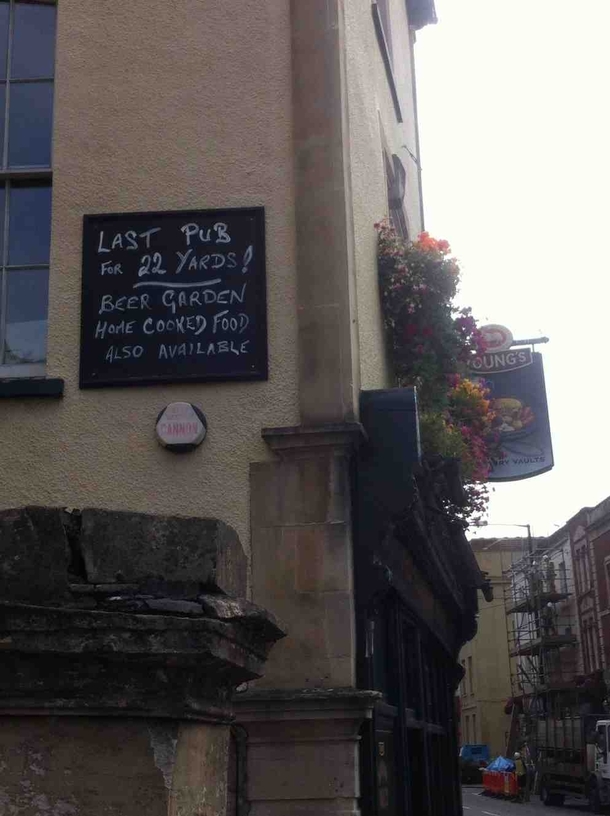 LAST PUB
FOR 22 YARDS!
BEER GARDEN
HOME COOKED FOOD
ALSO AVAILABLE
CANNON
YOUNG'S
VAULTS